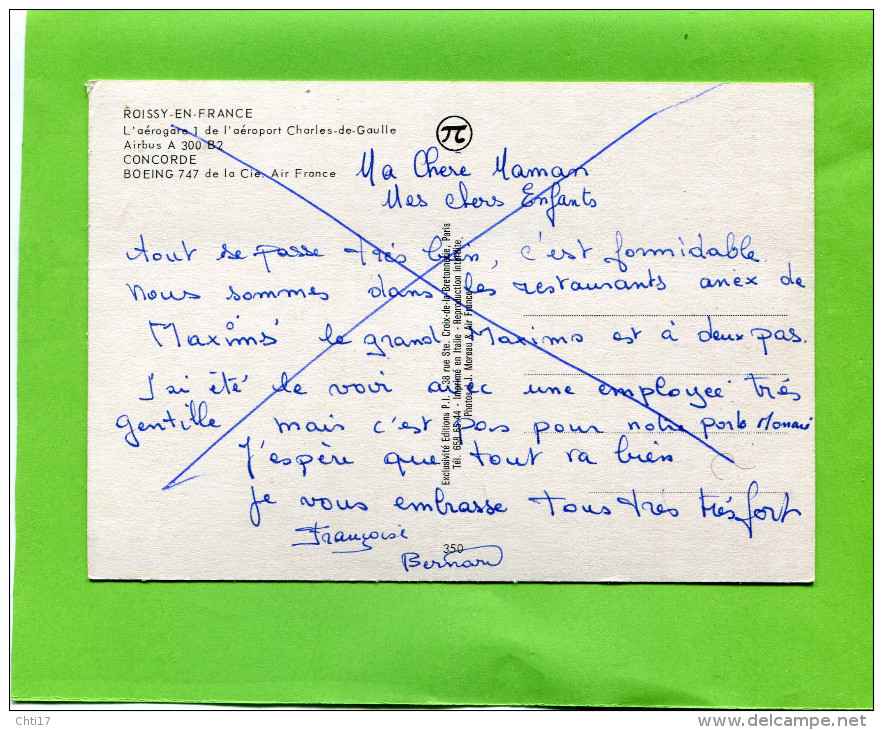 ROISSY-EN-FRANCE
L'aérogare 1 de l'aéroport Charles-de-Gaulle
Airbus A 300 B2
CONCORDE
BOEING 747 de la Cie. Air France
Ma Chère Maman
Mes chers Enfants
tout se passe très bien, c'est formidable.
nous sommes dans les restaurants anex de
Maxims' le grand Maxims est à deux pas.
J'ai été le voir avec une employée très
gentille mais c'est pas pour notre porte Monaie
J'espère que tout va bien
je vous embrasse tous très très fort
Françoise
Bernard
Exclusivité Editions P.I. - 38 rue Ste. Croix-de-la Bretonnerie, Paris
Tél. 659 65 44 - Imprimé en Italie - Reproduction interdite.
Photos: J. Moreau & Air France
350
Chti17
www.delcampe.net